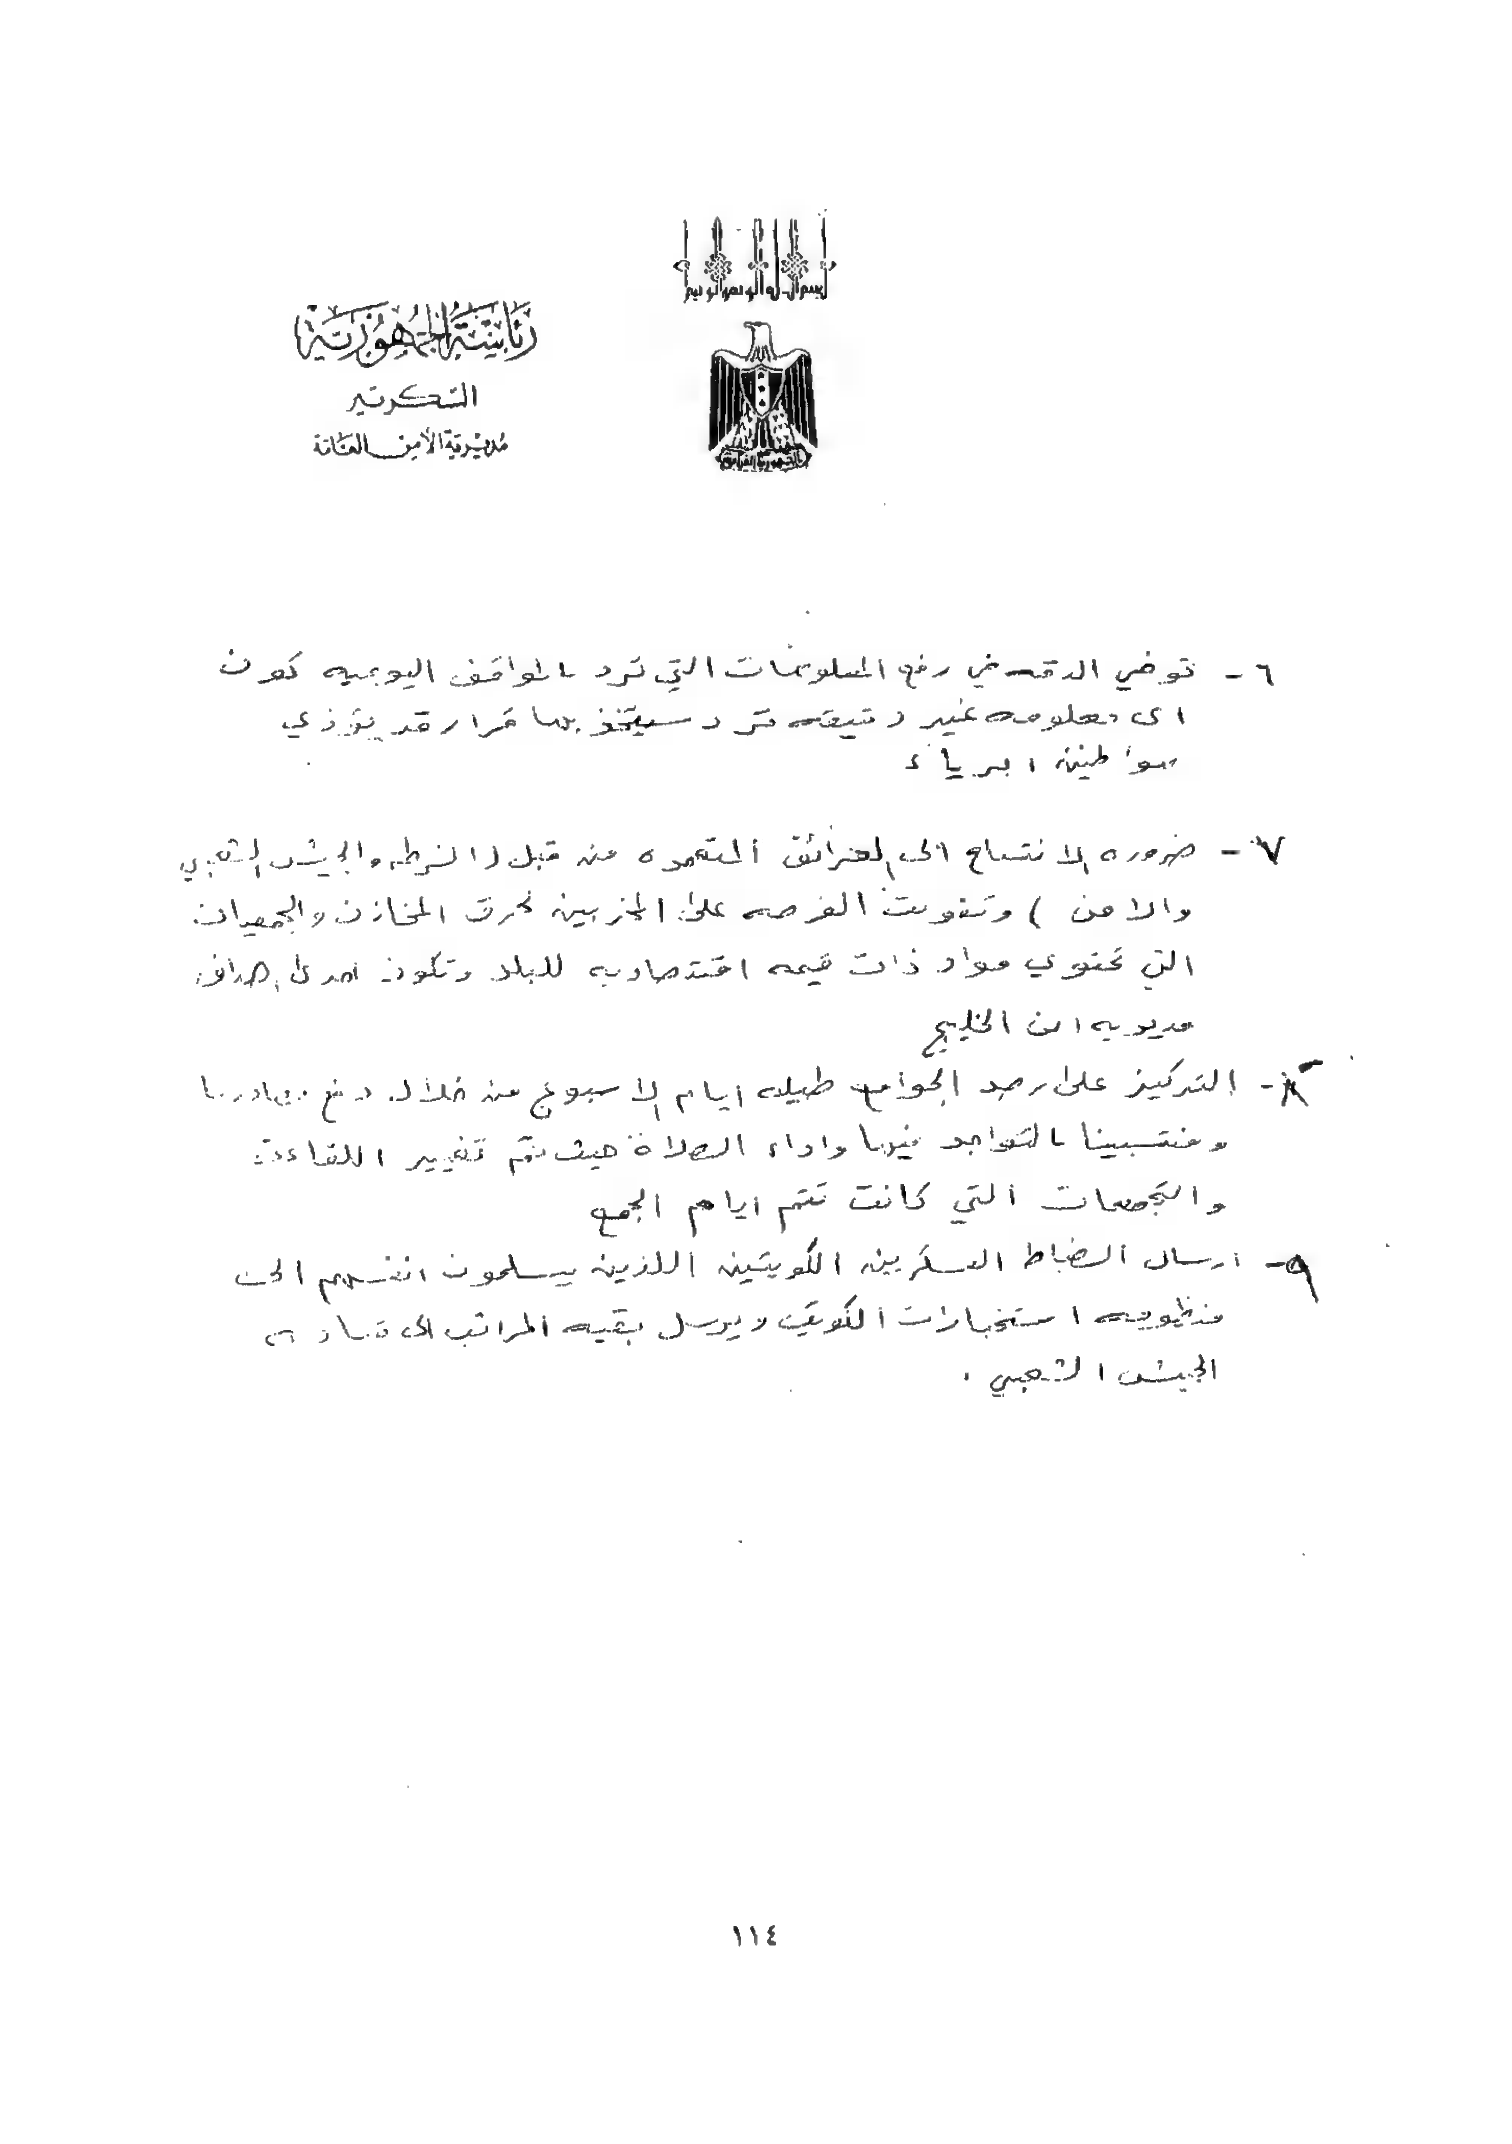 بسم الله الرحمن الرحيم
رئاسة الجمهورية
السكرتير
مديرية الأمن العامة
الجمهورية العراقية
٦ - توخي الدقه في رفع المعلومات التي ترد بالمواقف اليوميه كون
اي معلومه غير دقيقه ترد سيتخذ بها قرار قد يؤذي
مواطنين ابرياء
٧ - ضروره الانتباه الى الحرائق المتعمده من قبل ( الشرطه والجيش الشعبي
والامن ) وتفويت الفرصه على المخربين بحرق المخازن والجمعيات
التي تحتوي مواد ذات قيمه اقتصاديه للبلد وتكون احدى اهداف
مديريه امن الخليج
٨ - التركيز على رصد الجوامع طيله ايام الاسبوع من خلال دفع مصادرنا
ومنتسبينا بالتواجد فيها واداء الصلاة حيث تم تغيير اللقاءات
والتجمعات التي كانت تتم ايام الجمع
٩ - ارسال الضباط العسكريين الكويتين اللذين يسلمون انفسهم الى
منظومه استخبارات الكويت ويرسل بقيه المراتب الى قياده
الجيش الشعبي .
١١٤